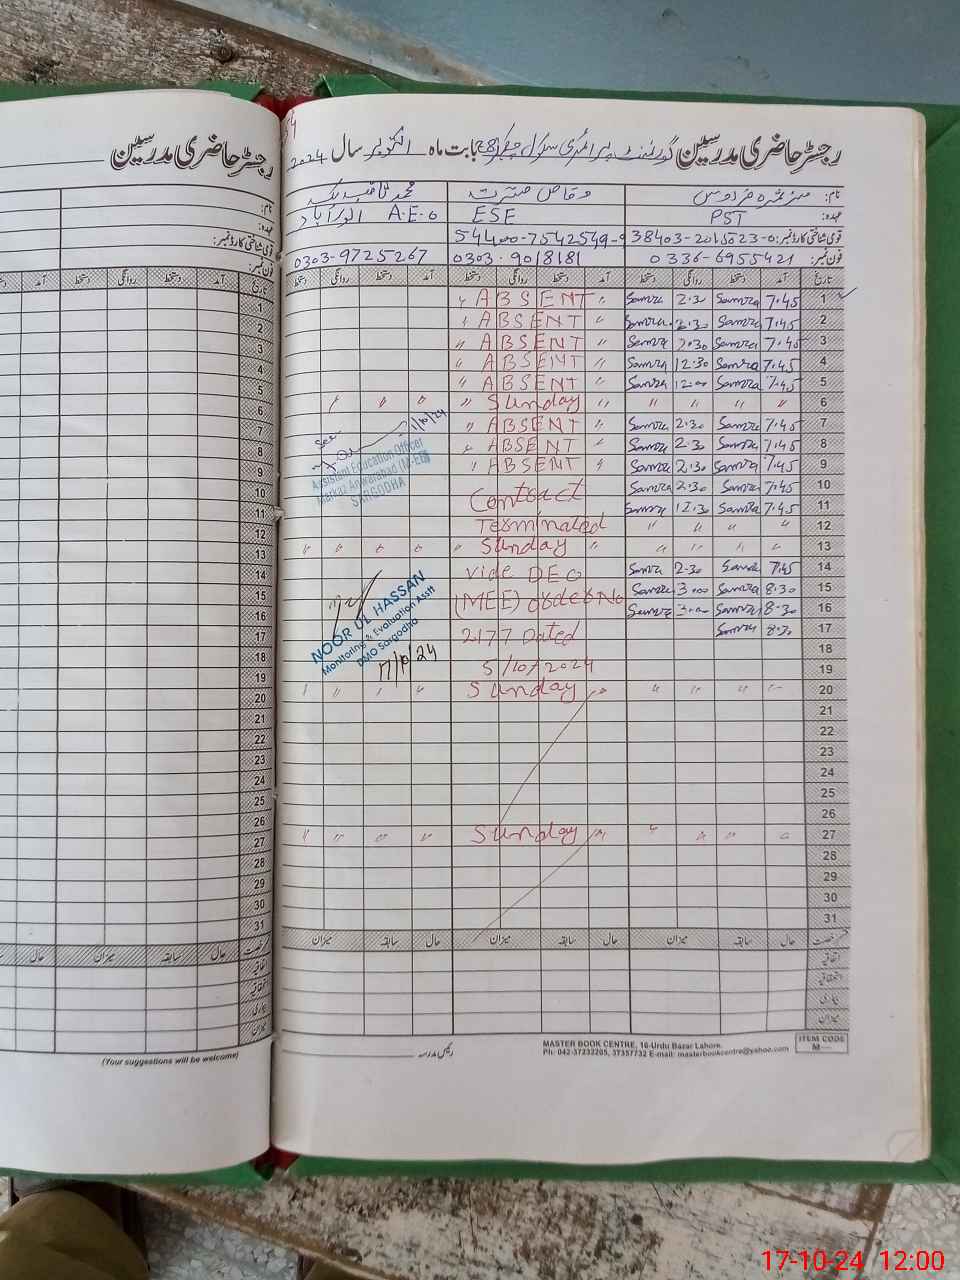 رجسٹر حاضری مدرسین
رجسٹر حاضری مدرسین گورنمنٹ پرائمری سکول بابت ماہ اکتوبر سال 2024
نام:
عہدہ:
قومی شناختی کارڈ نمبر:
فون نمبر:
نام: وقاص محمد ثاقب
عہدہ: PST ESE A.E.O
قومی شناختی کارڈ نمبر: 38403-2015023-0 54400-7542549-9
فون نمبر: 0336-6955421 0303-9018181 0303-9725267
تاریخ آمد دستخط روانگی دستخط آمد دستخط روانگی دستخط آمد دستخط روانگی دستخط
1 7.45 Samra 2.30 Samra " ABSENT "
2 7.45 Samra 2.30 Samra " ABSENT "
3 7.45 Samra 2.30 Samra " ABSENT "
4 7.45 Samra 12.30 Samra " ABSENT "
5 7.45 Samra 12.00 Samra " ABSENT "
6 " " " " " Sunday " " " "
7 7.45 Samra 2.30 Samra " ABSENT "
8 7.45 Samra 2.30 Samra " ABSENT "
9 7.45 Samra 2.30 Samra " ABSENT "
10 7.45 Samra 2.30 Samra Contract
11 7.45 Samra 12.30 Samra
12 " " " " Terminated
13 " " " " " Sunday " " " " "
14 7.45 Samra 2.30 Samra vide DEO
15 8.30 Samra 3.00 Samra (MEE) order No
16 8.30 Samra 3.00 Samra
17 8.30 Samra 2177 Dated
18
19 5/10/2024
20 " " " " " Sunday " " " "
21
22
23
24
25
26
27 " " " " " Sunday " " " "
28
29
30
31
See
11/10/24
Assistant Education Officer
Markaz Anwarabad (M-EE)
SARGODHA
NOOR UL HASSAN
Monitoring & Evaluation Asstt
DMO Sargodha
17/10/24
حال سابقہ میزان حال سابقہ میزان حال سابقہ میزان
اتفاقیہ
بیماری
میزان
رئیس مدرسہ
MASTER BOOK CENTRE, 16-Urdu Bazar Lahore.
Ph: 042-37232205, 37357732 E-mail: masterbookcentre@yahoo.com
ITEM CODE
M—
(Your suggestions will be welcome)
17-10-24 12:00